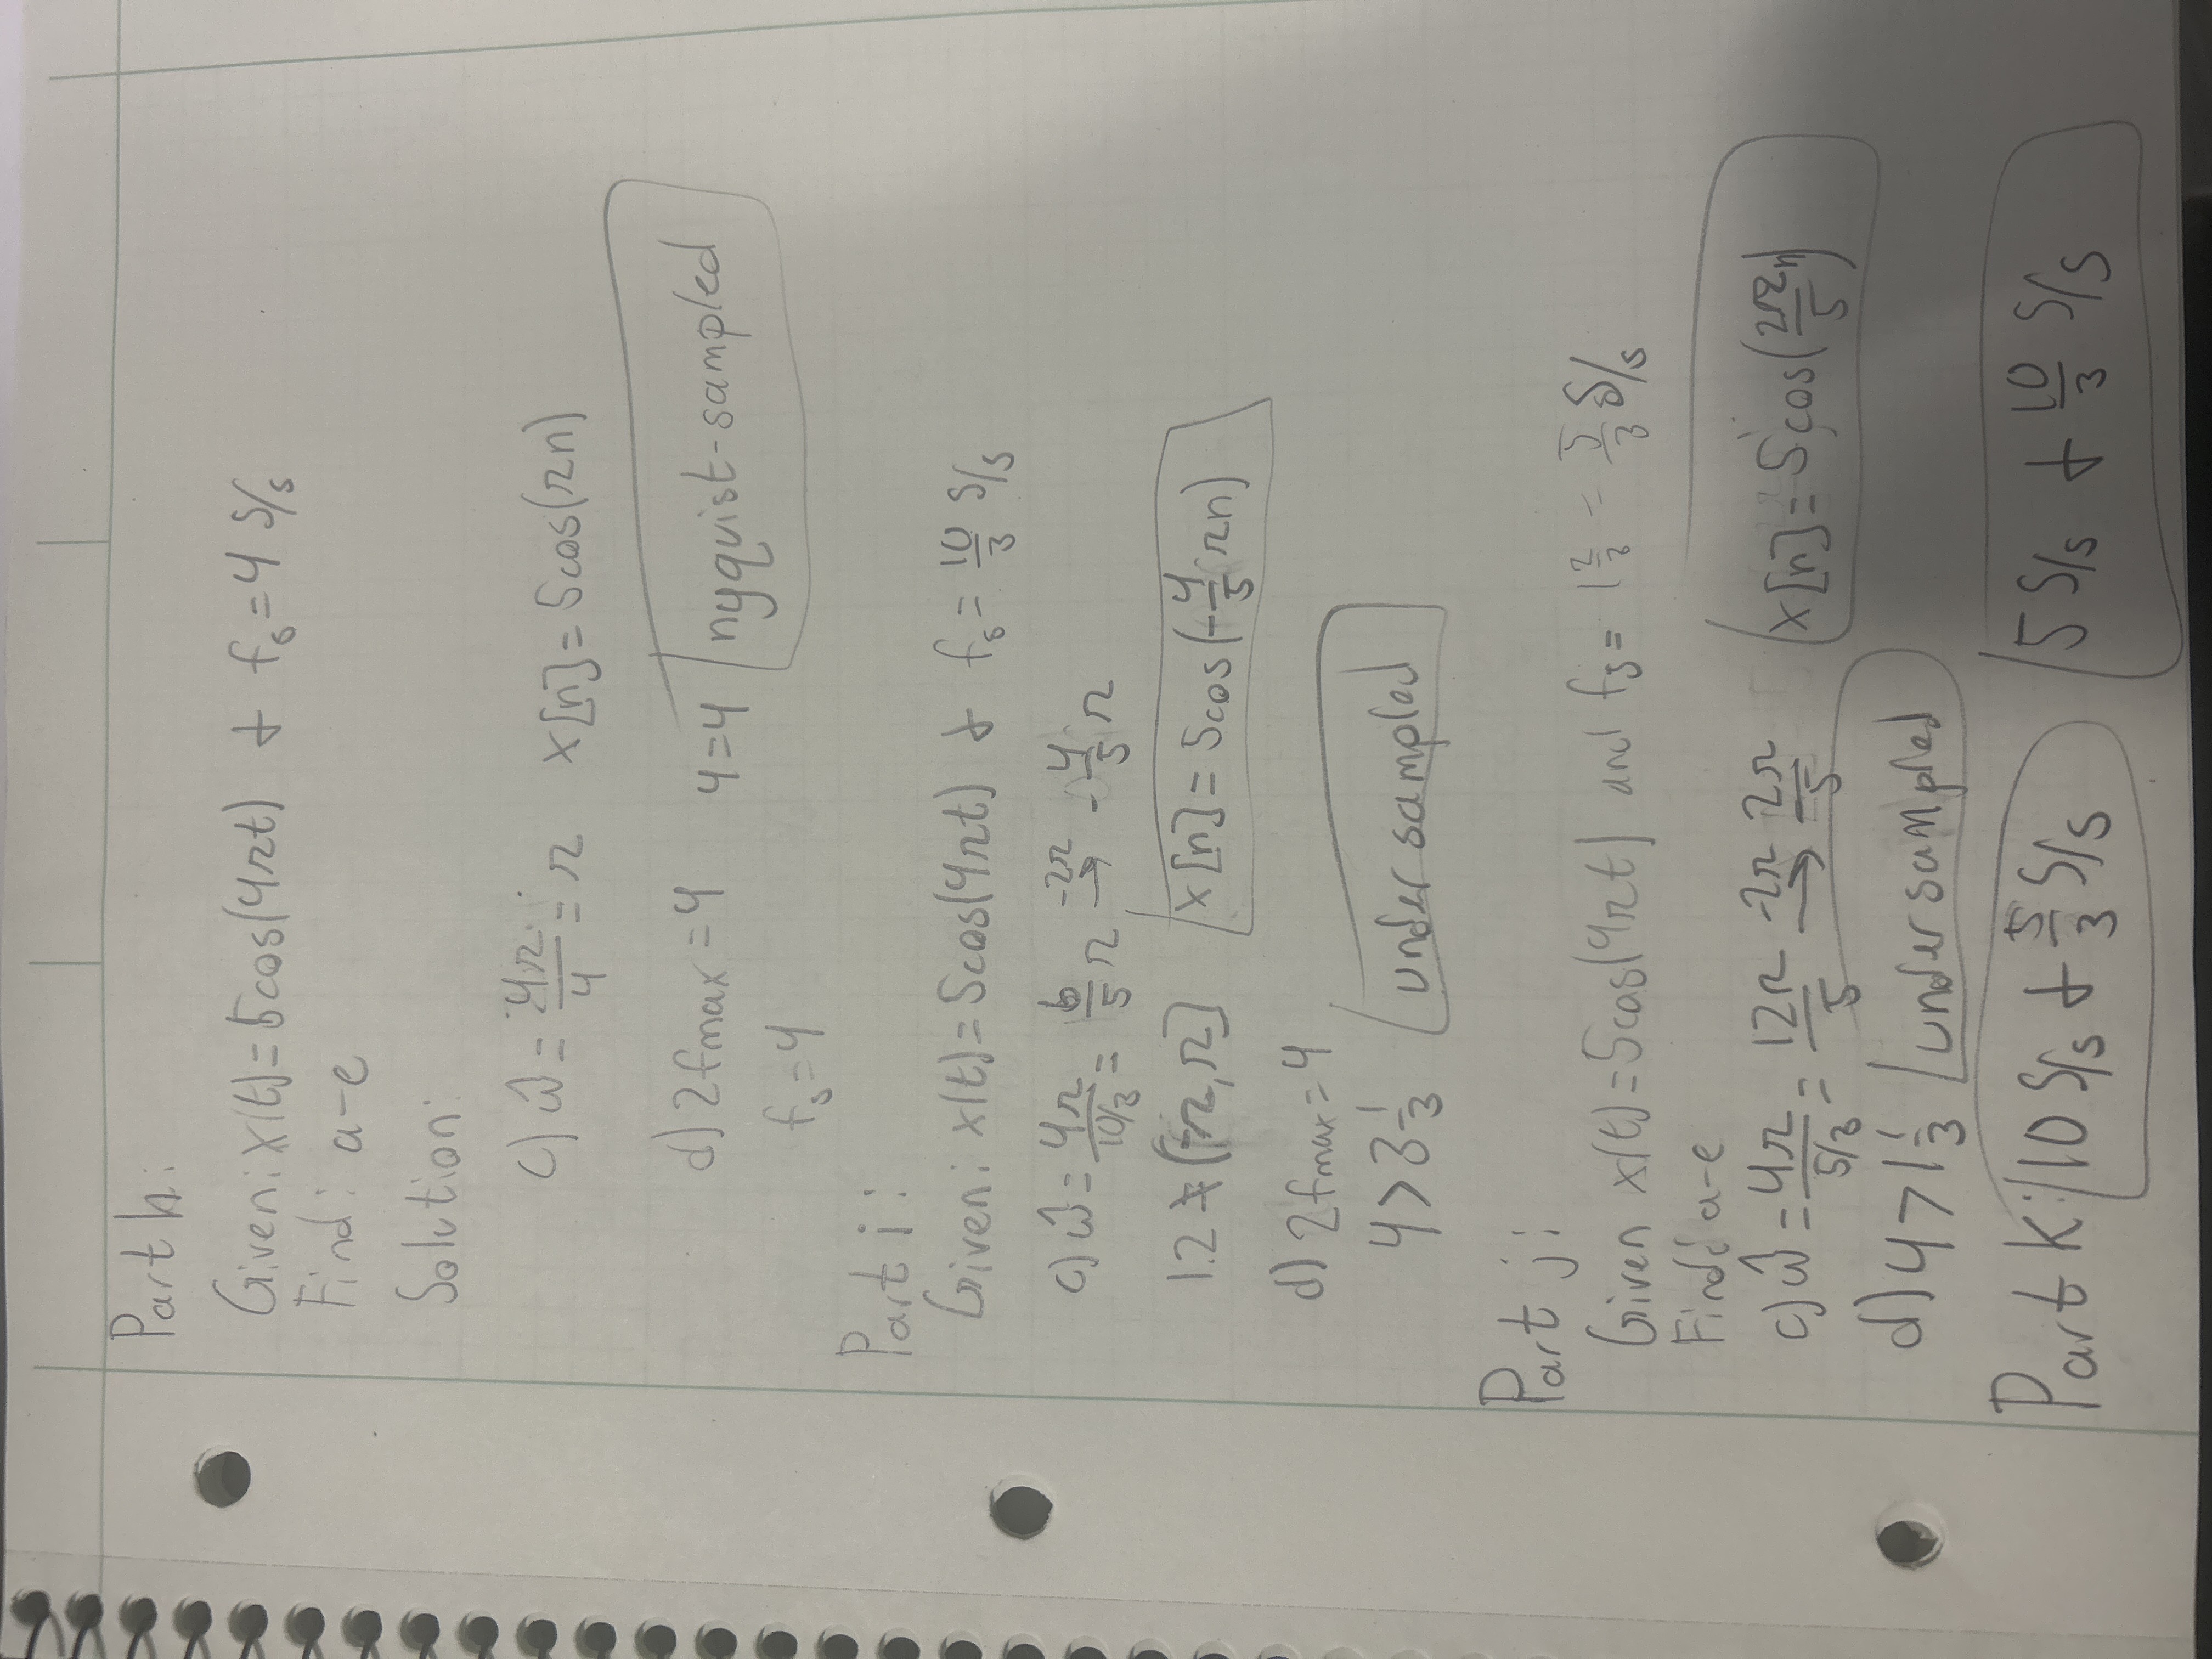 Part h:
Given: x(t)=5cos(4πt) & fs=4 S/s
Find: a-e
Solution:
c) ω̂ = 4π/4 = π x[n]=5cos(πn)
d) 2fmax=4 4=4 nyquist-sampled
fs=4
Part i:
Given: x(t)=5cos(4πt) & fs= 10/3 S/s
c) ω̂= 4π/(10/3) = 6/5 π -2π→ -4/5 π
1.2 ≠ (-π,π] x[n]=5cos(-4/5 πn)
d) 2fmax=4
4>3 1/3 under sampled
Part j:
Given x(t)=5cos(4πt) and fs= 1 2/3 = 5/3 S/s
Find: a-e
c) ω̂ = 4π/(5/3) = 12π/5 -2π→ 2π/5 x[n]= 5cos(2π/5 n)
d) 4>1 1/3 under sampled
Part k: 10 S/s & 5/3 S/s 5 S/s & 10/3 S/s